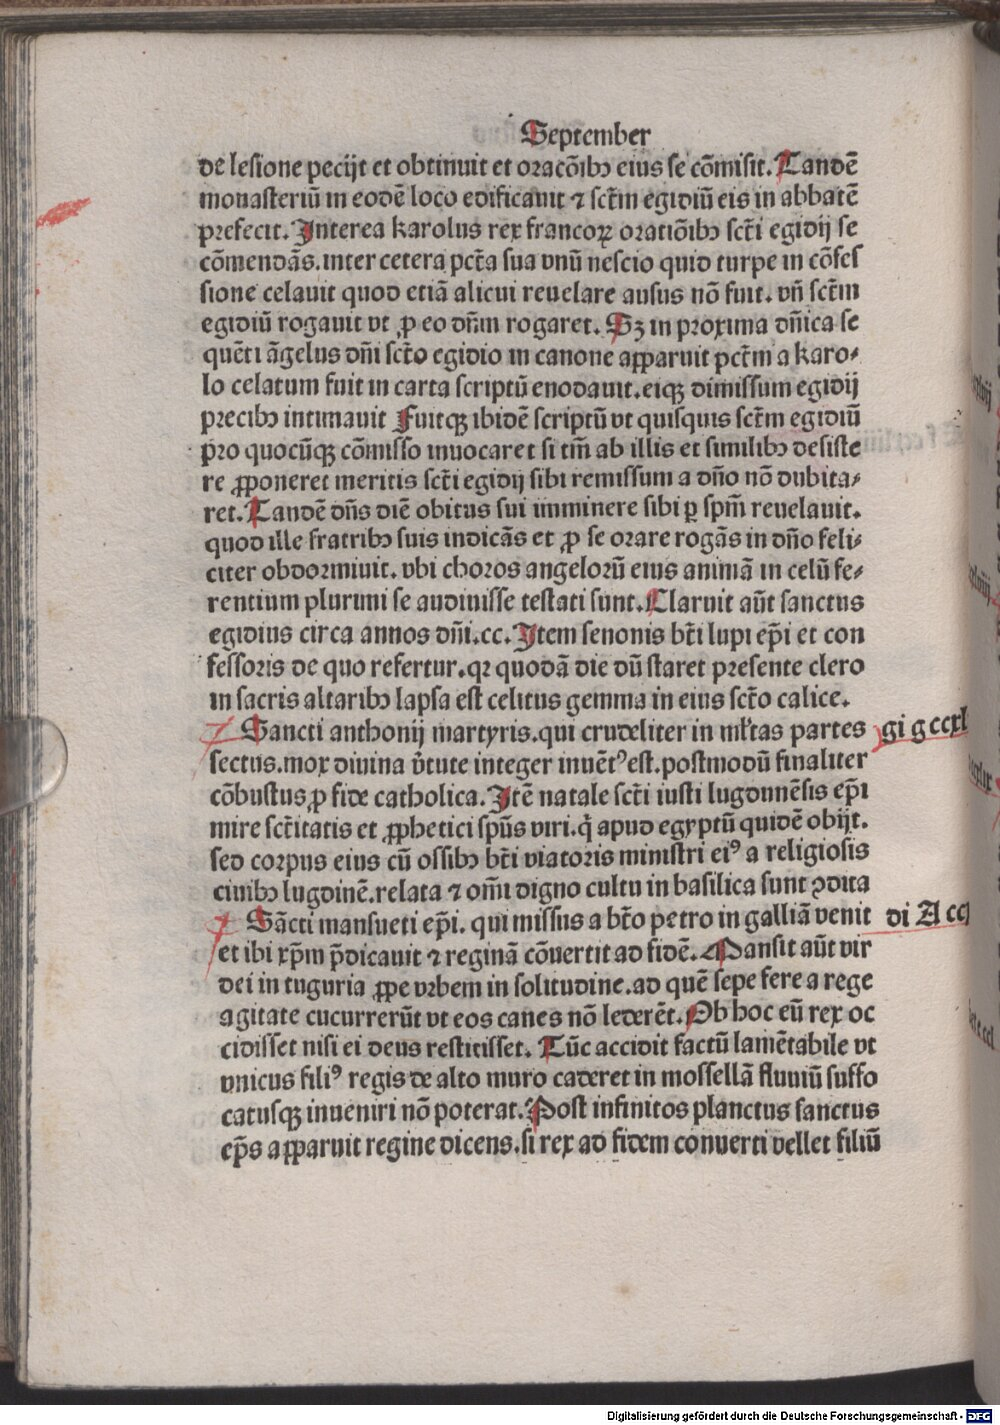 September
de lesione pecijt et obtinuit et oracõibꝯ eius se cõmisit. Tandẽ
monasteriũ in eodẽ loco edificauit ⁊ sct̃m egidiũ eis in abbatẽ
prefecit. Interea karolus rex francoꝝ oratiõibꝯ sct̃i egidij se
cõmendãs. inter cetera pct̃a sua vnũ nescio quid turpe in cõfes
sione celauit quod etiã alicui reuelare ausus nõ fuit. vñ sct̃m
egidiũ rogauit vt ꝓ eo dñm rogaret. Sꝫ in proxima dñica se
quẽti ãgelus dñi sct̃o egidio in canone aꝑparuit pct̃m a karo⸗
lo celatum fuit in carta scriptũ enodauit. eiqꝫ dimissum egidij
precibꝯ intimauit Fuitqꝫ ibidẽ scriptũ vt quisquis sct̃m egidiũ
pro quocũqꝫ cõmisso inuocaret si tm̃ ab illis et similibꝯ desiste
re ꝓponeret meritis sct̃i egidij sibi remissum a dño nõ dubita⸗
ret. Tandẽ dñs diẽ obitus sui imminere sibi ꝑ spm̃ reuelauit.
quod ille fratribꝯ suis indicãs et ꝓ se orare rogãs in dño feli⸗
citer obdormiuit. vbi choros angelorũ eius animã in celũ fe⸗
rentium plurimi se audiuisse testati sunt. Claruit aũt sanctus
egidius circa annos dñi. cc. Item senonis bt̃i lupi ep̃i et con
fessoris de quo refertur. qꝛ quodã die dũ staret presente clero
in sacris altaribꝯ lapsa est celitus gemma in eius sct̃o calice.
Sancti anthonij martyris. qui crudeliter in mĺtas partes gi g ccxl
sectus. mox diuina v̓tute integer inuẽtꝰ est. postmodũ finaliter
cõbustus ꝓ fide catholica. Itẽ natale sct̃i iusti lugdunẽsis ep̃i
mire sct̃itatis et ꝓphetici spũs viri. q̇ apud egyptũ quidẽ obijt.
sed corpus eius cũ ossibꝯ bt̃i viatoris ministri eiꝰ a religiosis
ciuibꝯ lugdinẽ. relata ⁊ om̃i digno cultu in basilica sunt ꝯdita
Sãcti mansueti ep̃i. qui missus a bt̃o petro in galliã venit di A cc
et ibi xp̃m p̃dicauit ⁊ reginã cõuertit ad fidẽ. Mansit aũt vir
dei in tuguria ꝓpe vrbem in solitudine. ad quẽ sepe fere a rege
agitate cucurrerũt vt eos canes nõ lederẽt. Ob hoc eũ rex oc
cidisset nisi ei deus restitisset. Tũc accidit factũ lamẽtabile vt
vnicus filiꝰ regis de alto muro caderet in mosellã fluuiũ suffo
catusqꝫ inueniri nõ poterat. Post infinitos planctus sanctus
ep̃s aꝑparuit regine dicens. si rex ad fidem conuerti vellet filiũ
Digitalisierung gefördert durch die Deutsche Forschungsgemeinschaft - DFG